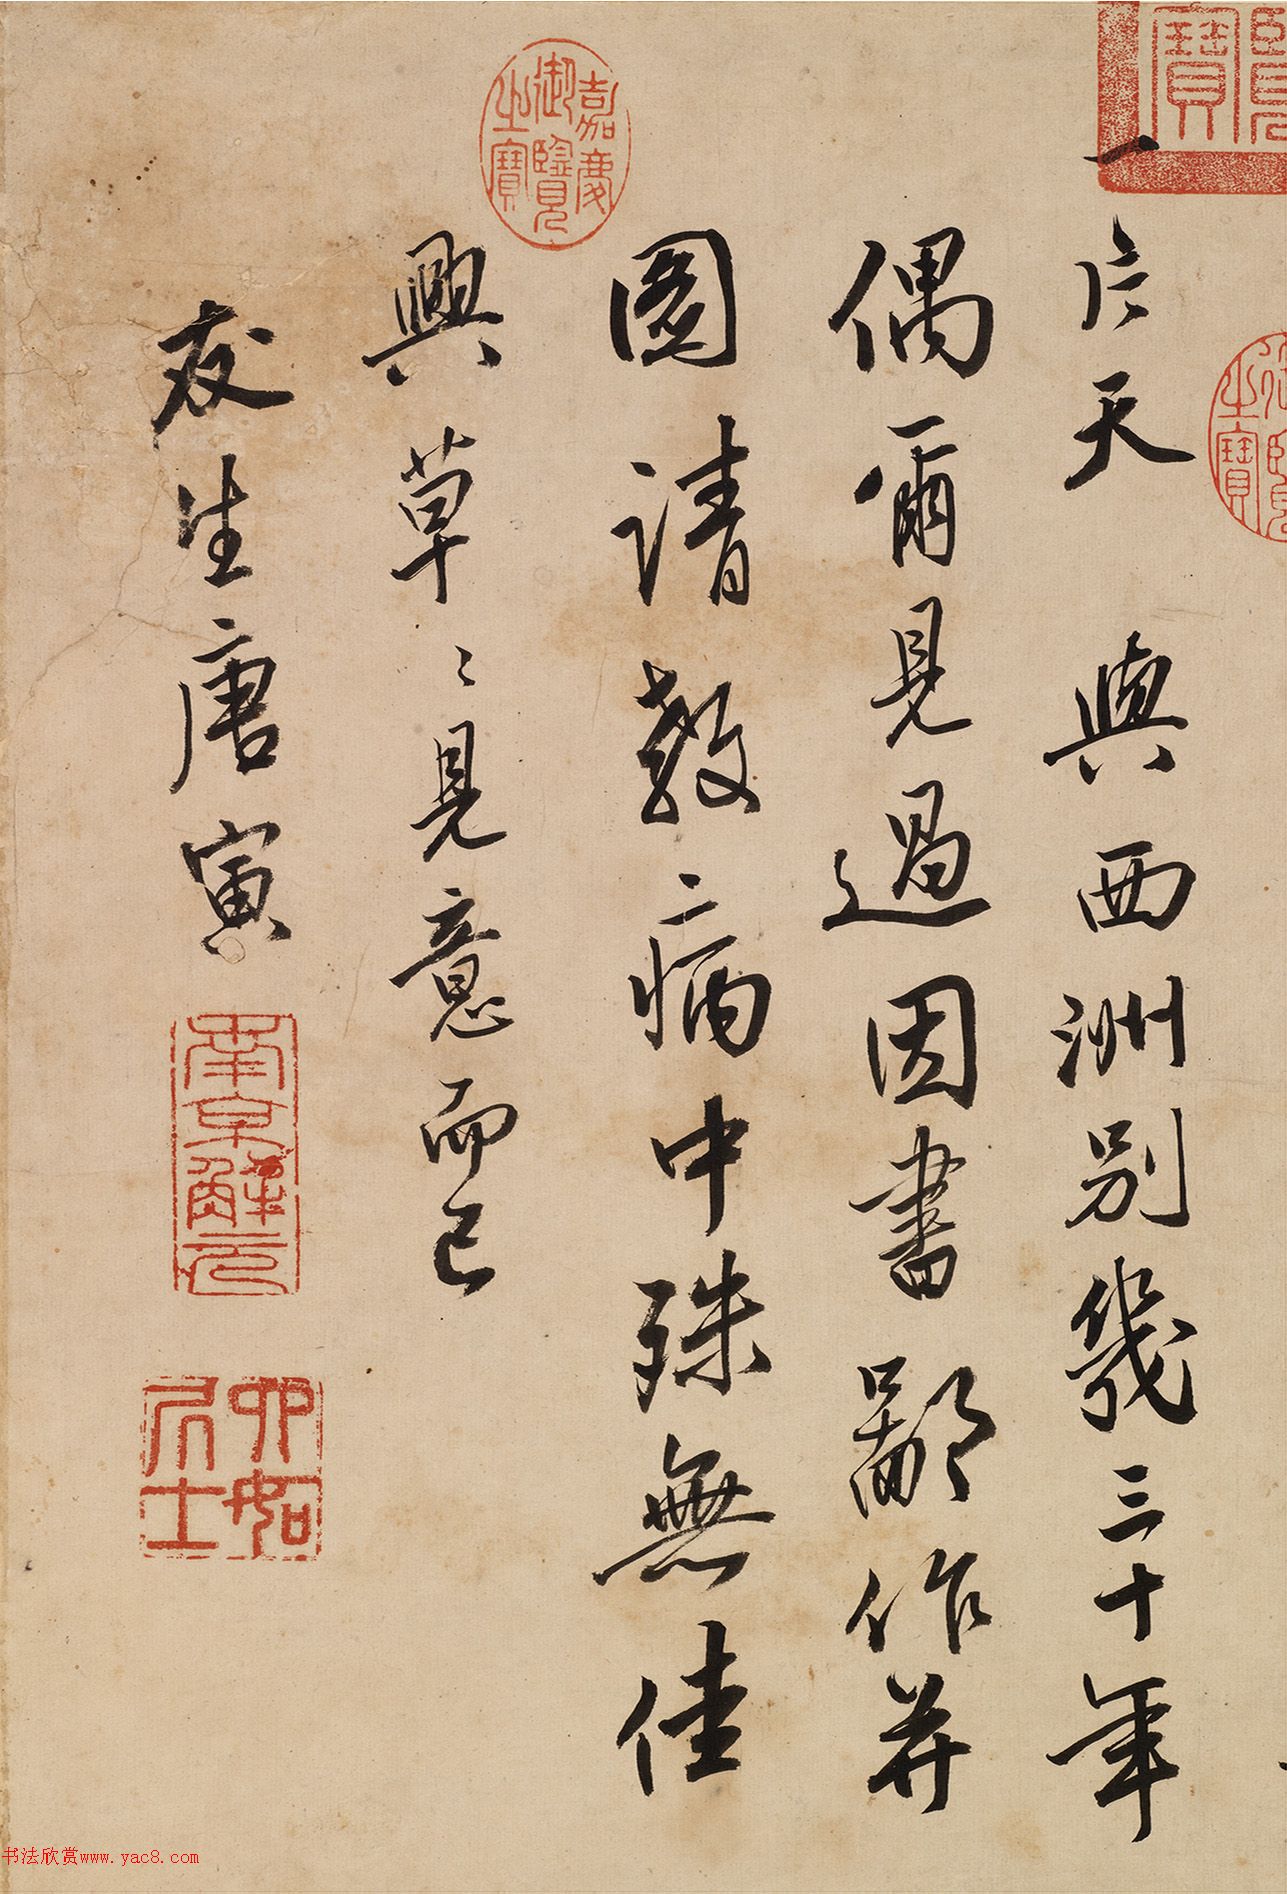 一片天與西洲別幾三十年
偶爾見過因書鄙作并
圖請教病中殊無佳
興草〻見意而已
友生唐寅
嘉慶
御覽
之寶
南京解元
六如
居士
書法欣賞www.yac8.com